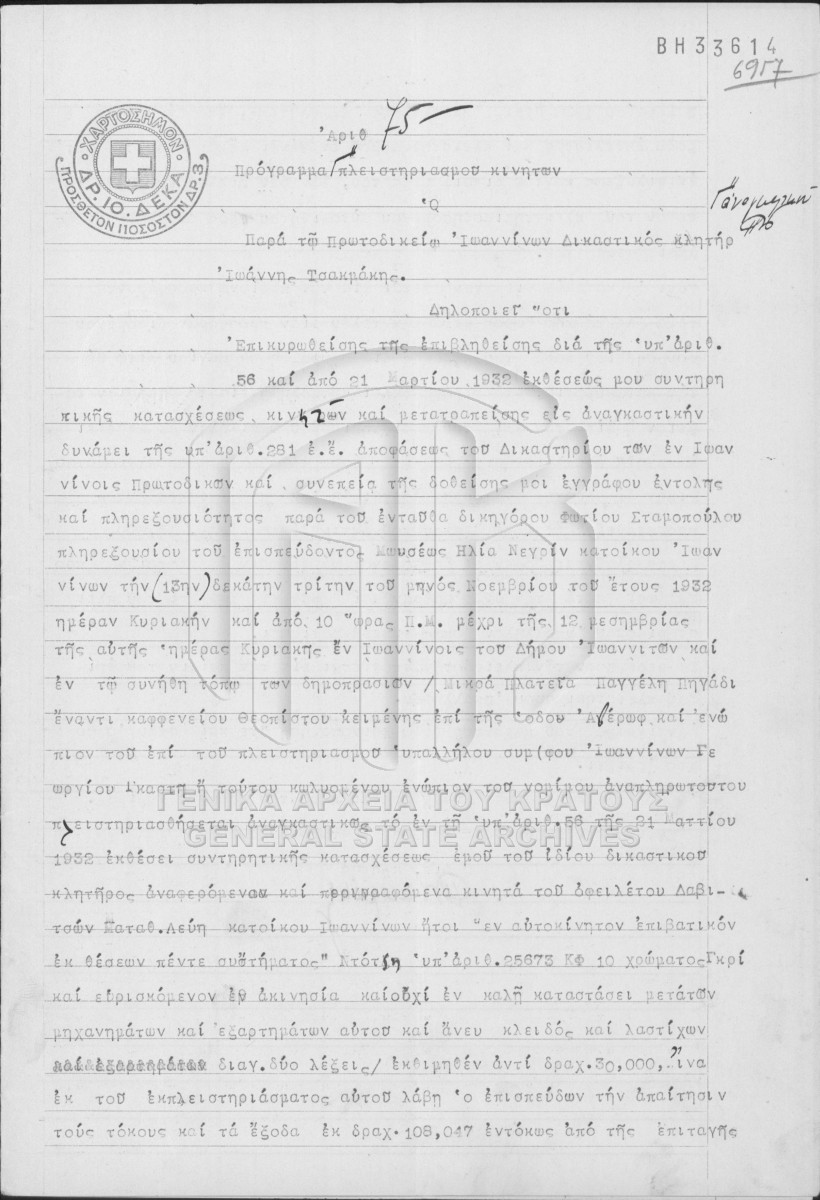 ΒΗ33614
6957
ΧΑΡΤΟΣΗΜΟΝ
ΔΡ. 10. ΔΕΚΑ
ΠΡΟΣΘΕΤΟΝ ΠΟΣΟΣΤΟΝ ΔΡ. 3
Ἀριθ 75
Πρόγραμμα Γ πλειστηριασμοῦ κινητῶν
Ὁ
Παρά τῷ Πρωτοδικείῳ Ἰωαννίνων Δικαστικός κλητήρ
Ἰωάννης Τσακμάκης.
Δηλοποιεῖ ὅτι
Ἐπικυρωθείσης τῆς ἐπιβληθείσης διά τῆς ὑπ'ἀριθ.
56 καί ἀπό 21 Μαρτίου 1932 ἐκθέσεώς μου συντηρη
τικῆς κατασχέσεως κινητῶν καί μετατραπείσης εἰς ἀναγκαστικήν
δυνάμει τῆς ὑπ'ἀριθ.281 ἐ.ἔ. ἀποφάσεως τοῦ Δικαστηρίου τῶν ἐν Ἰωαν
νίνοις Πρωτοδικῶν καί συνεπείᾳ τῆς δοθείσης μοι ἐγγράφου ἐντολῆς
καί πληρεξουσιότητος παρά τοῦ ἐνταῦθα δικηγόρου Φωτίου Σταμοπούλου
πληρεξουσίου τοῦ ἐπισπεύδοντος Μωυσέως Ηλία Νεγρίν κατοίκου Ἰωαν
νίνων τήν (13ην) δεκάτην τρίτην τοῦ μηνός Νοεμβρίου τοῦ ἔτους 1932
ἡμέραν Κυριακήν καί ἀπό 10 ὥρας Π.Μ. μέχρι τῆς 12 μεσημβρίας
τῆς αὐτῆς ἡμέρας Κυριακῆς ἐν Ἰωαννίνοις τοῦ Δήμου Ἰωαννιτῶν καί
ἐν τῷ συνήθη τόπῳ τῶν δημοπρασιῶν / Μικρά Πλατεῖα Παγγέλη Πηγάδι
ἔναντι καφφενείου Θεοπίστου κειμένης ἐπί τῆς ὁδοῦ Ἀβέρωφ καί ἐνώ
πιον τοῦ ἐπί τοῦ πλειστηριασμοῦ ὑπαλλήλου συμ(φου Ἰωαννίνων Γε
ωργίου Γκαρτη ἤ τούτου κωλυομένου ἐνώπιον τοῦ νομίμου ἀναπληρωτοῦτου
πλειστηριασθήσεται ἀναγκαστικῶς τό ἐν τῇ ὑπ'ἀριθ.56 τῆς 21 Ματτίου
1932 ἐκθέσει συντηρητικῆς κατασχέσεως ἐμοῦ τοῦ ἰδίου δικαστικοῦ
κλητῆρος ἀναφερόμενον καί περιγραφόμενα κινητά τοῦ ὀφειλέτου Δαβι-
τσών Ματαθ.Λεύη κατοίκου Ἰωαννίνων ἤτοι ἕν αὐτοκίνητον ἐπιβατικόν
ἐκ θέσεων πέντε συστήματος" Ντότζη ὑπ'ἀριθ.25673 ΚΦ 10 χρώματος Γκρί
καί εὑρισκόμενον ἐν ἀκινησία καίοὐχί ἐν καλῇ καταστάσει μετάτῶν
μηχανημάτων καί ἐξαρτημάτων αὐτοῦ καί ἄνευ κλειδός καί λαστίχων
καί ἐξαρτημάτων διαγ.δύο λέξεις/ ἐκθιμηθέν ἀντί δραχ.30,000, ἵνα
ἐκ τοῦ ἐκπλειστηριάσματος αὐτοῦ λάβῃ ὁ ἐπισπεύδων τήν ἀπαίτησιν
τούς τόκους καί τά ἔξοδα ἐκ δραχ.108,047 ἐντόκως ἀπό τῆς ἐπιταγῆς
ΓΕΝΙΚΑ ΑΡΧΕΙΑ ΤΟΥ ΚΡΑΤΟΥΣ
GENERAL STATE ARCHIVES